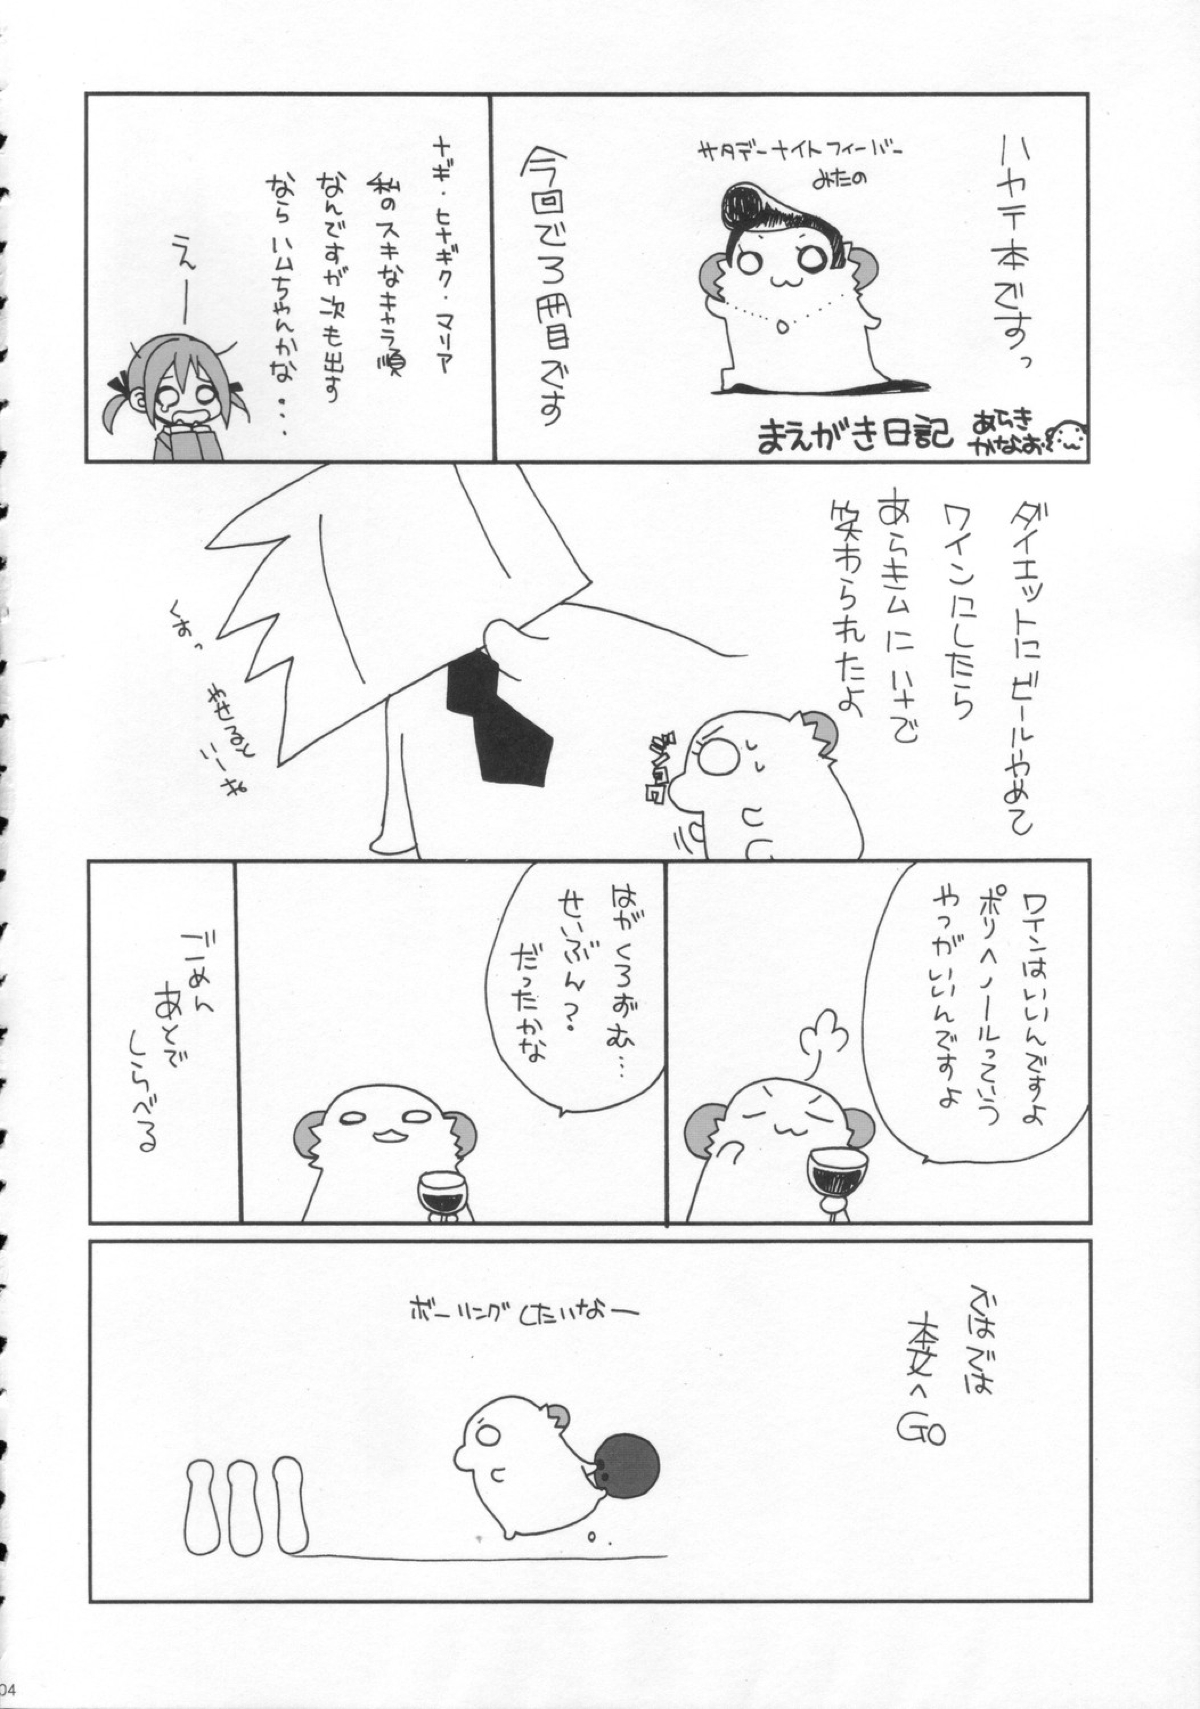 ハヤテ本ですっ
サタデーナイトフィーバー
みたの
今回で3冊目です
まえがき日記
あらき
かなお
ナギ・ヒナギク・マリア
私のスキなキャラ順
なんですが次も出す
なら ハムちゃんかな・・・
えー
ダイエットにビールやめて
ワインにしたら
あらきムにハナで
笑わられたよ
くすっ
やせると
いーね
ワインはいいんですよ
ポリヘノールっていう
やつがいいんですよ
はがくろずむ…
せいぶん?
だったかな
ごめん
あとで
しらべる
ではでは
本文へ
GO
ボーリングしたいなー
04